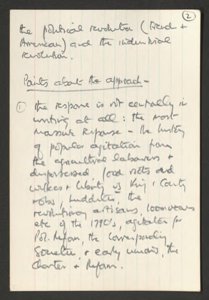 2
the political revolution (French +
American) and the industrial
revolution.
Points about the approach –
1 the response is not centrally in
writing at all : the most
massive response – the history
of popular agitation from
the agricultural labourers +
dispossessed, food riots and
Church + King, county
mobs, Luddites, the
revolutionary artisans,
etc of the 1790's, agitation for
Pol. Reform, the Corresponding
Societies, + early unions, the
Charter + Reform.